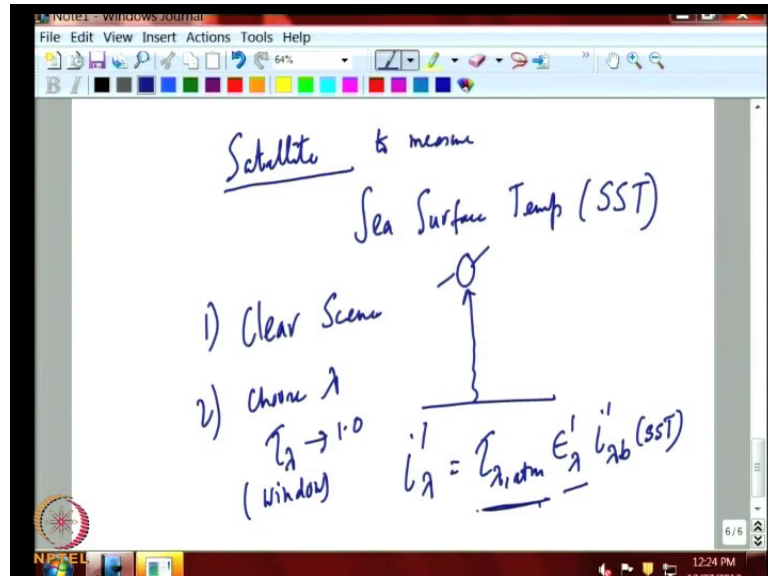 Note1 - Windows Journal
File Edit View Insert Actions Tools Help
64%
B I
Satellite to measure
Sea Surface Temp (SST)
1) Clear Scene
2) Choose λ
τλ → 1.0
(window)
i'λ = τλ,atm ε'λ i'λb (SST)
6/6
NPTEL
12:24 PM